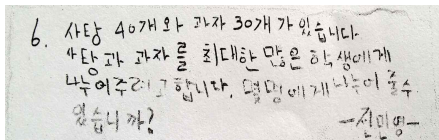 6. 사탕 40개와 과자 30개가 있습니다
사탕과 과자를 최대한 많은 학생에게
나누어주려고합니다. 몇명에게 나누어 줄수
있습니까? -전민영-